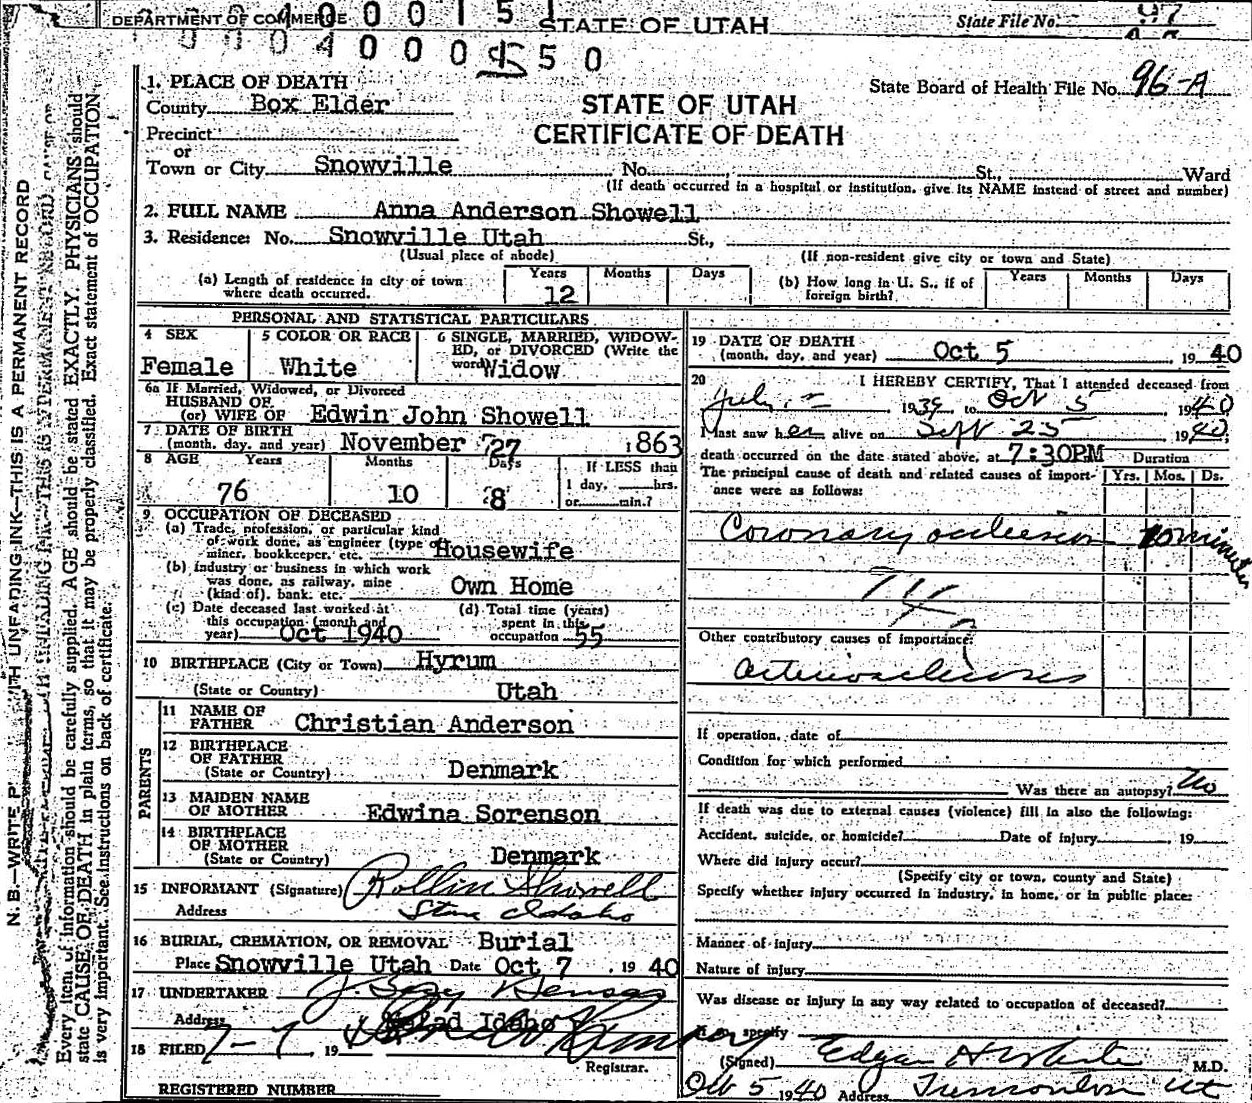 DEPARTMENT OF COMMERCE
STATE OF UTAH
State File No. 97
0 0 0 4 0 0 0 5 5 0
State Board of Health File No. 96-A
STATE OF UTAH
CERTIFICATE OF DEATH
1. PLACE OF DEATH
County Box Elder
Precinct
or
Town or City Snowville No. St., Ward
(If death occurred in a hospital or institution, give its NAME instead of street and number)
2. FULL NAME Anna Anderson Showell
3. Residence: No. Snowville Utah St.,
(Usual place of abode) (If non-resident give city or town and State)
(a) Length of residence in city or town where death occurred. Years 12 Months Days
(b) How long in U. S., if of foreign birth? Years Months Days
PERSONAL AND STATISTICAL PARTICULARS
4 SEX Female
5 COLOR OR RACE White
6 SINGLE, MARRIED, WIDOWED, or DIVORCED (Write the word) Widow
6a If Married, Widowed, or Divorced
HUSBAND OF
(or) WIFE OF Edwin John Showell
7 DATE OF BIRTH
(month, day, and year) November 27 1863
8 AGE Years 76 Months 10 Days 8 If LESS than 1 day, hrs. or min.?
9. OCCUPATION OF DECEASED
(a) Trade, profession, or particular kind
of work done, as engineer (type of
miner, bookkeeper, etc. Housewife
(b) Industry or business in which work
was done, as railway, mine
(kind of), bank, etc. Own Home
(c) Date deceased last worked at this occupation (month and year) Oct 1940
(d) Total time (years) spent in this occupation 55
10 BIRTHPLACE (City or Town) Hyrum
(State or Country) Utah
PARENTS
11 NAME OF FATHER Christian Anderson
12 BIRTHPLACE OF FATHER (State or Country) Denmark
13 MAIDEN NAME OF MOTHER Edwina Sorenson
14 BIRTHPLACE OF MOTHER (State or Country) Denmark
15 INFORMANT (Signature) Rollin Showell
Address Stone Idaho
16 BURIAL, CREMATION, OR REMOVAL Burial
Place Snowville Utah Date Oct 7, 1940
17 UNDERTAKER
Address Malad Idaho
18 FILED 19
Registrar.
REGISTERED NUMBER
19 DATE OF DEATH
(month, day, and year) Oct 5 1940
20 I HEREBY CERTIFY, That I attended deceased from
July 1939 to Oct 5 1940
I last saw her alive on Sept 25 1940
death occurred on the date stated above, at 7:30PM Duration
The principal cause of death and related causes of importance were as follows: Yrs. Mos. Ds.
Coronary occlusion minutes
Other contributory causes of importance:
arteriosclerosis
If operation, date of
Condition for which performed
Was there an autopsy? No
If death was due to external causes (violence) fill in also the following:
Accident, suicide, or homicide? Date of injury 19
Where did injury occur?
(Specify city or town, county and State)
Specify whether injury occurred in industry, in home, or in public place:
Manner of injury
Nature of injury
Was disease or injury in any way related to occupation of deceased?
If so, specify
(Signed) Edgar H White M.D.
Oct 5 1940 Address Tremonton Ut
N. B.—WRITE WITH UNFADING INK—THIS IS A PERMANENT RECORD
Every item of information should be carefully supplied. AGE should be stated EXACTLY. PHYSICIANS should
state CAUSE OF DEATH in plain terms, so that it may be properly classified. Exact statement of OCCUPATION
is very important. See instructions on back of certificate.